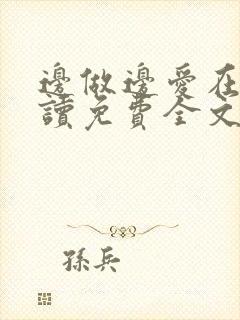 邊做邊愛在
讀免費全文
孫兵